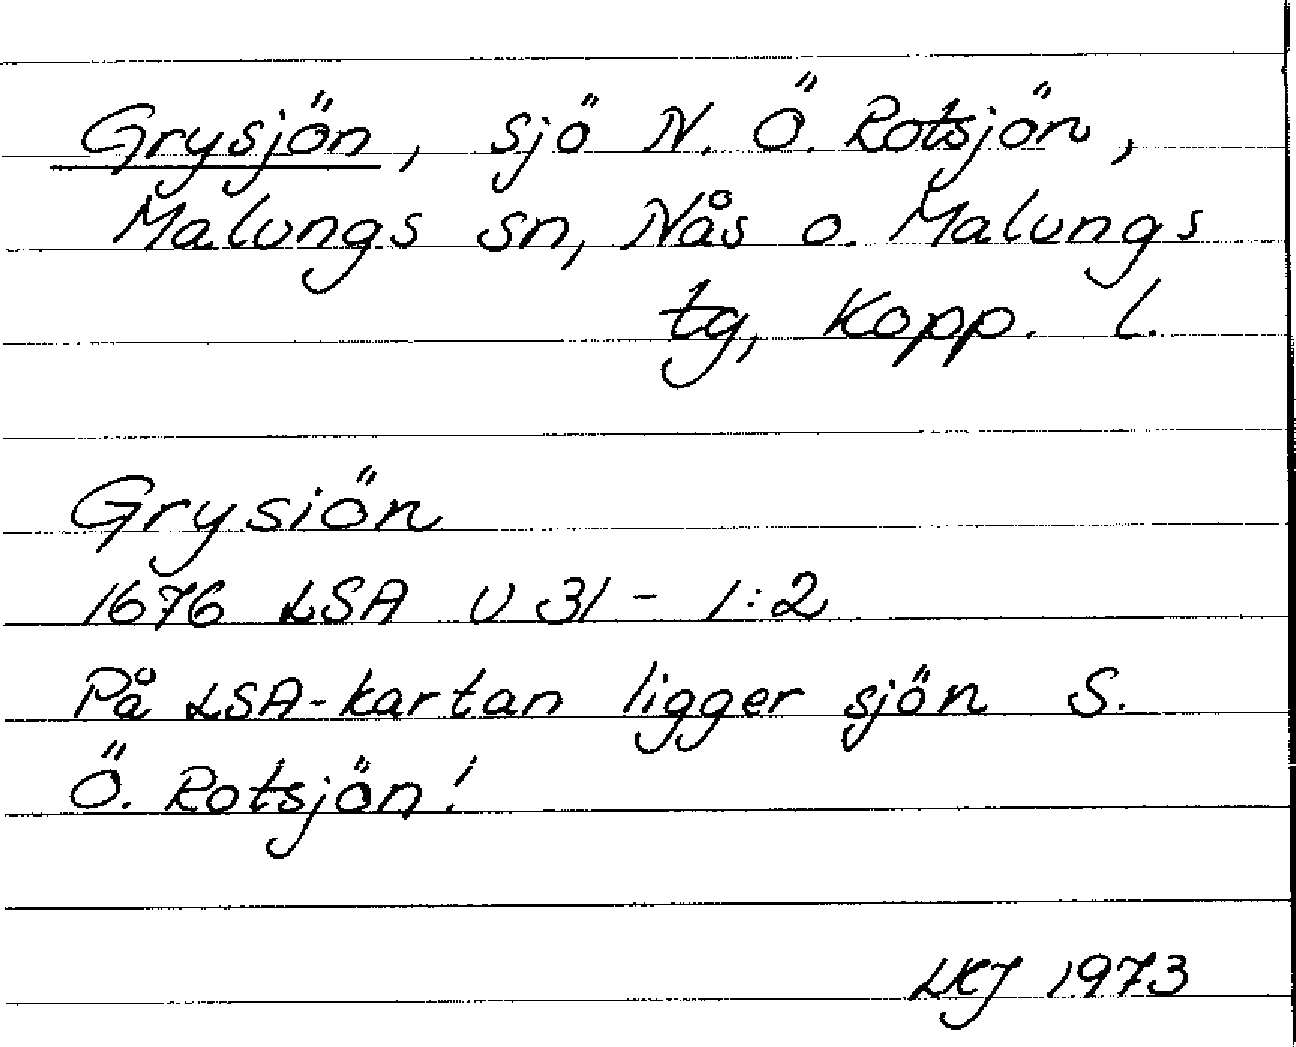 Grysjön, sjö N. Ö. Rotsjön,
Malungs sn, Nås o. Malungs
tg, Kopp. l.
Grysiön
1676 LSA U 31 - 1:2
På LSA-kartan ligger sjön S.
Ö. Rotsjön!
LKJ 1973